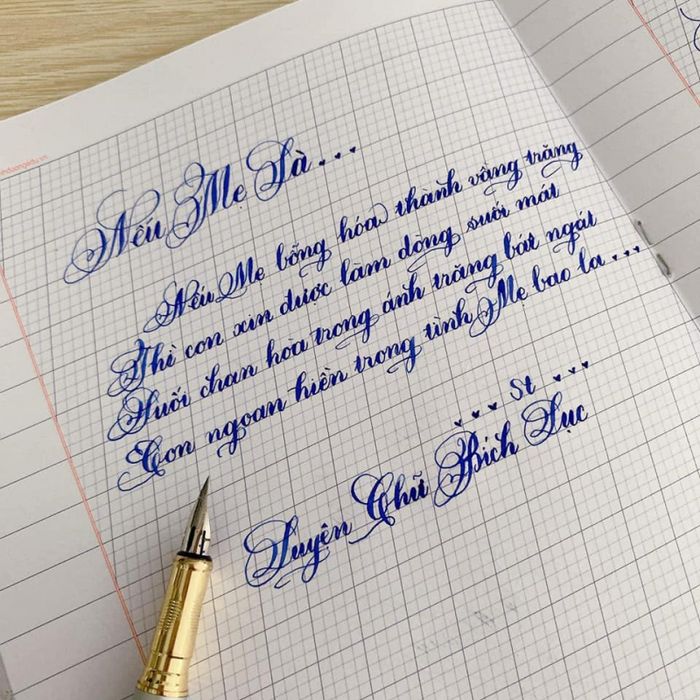 Nếu Mẹ Là...
Nếu Mẹ bỗng hóa thành vầng trăng
Thì con xin được làm dòng suối mát
Suối chan hòa trong ánh trăng bát ngát
Con ngoan hiền trong tình Mẹ bao la...
St
Luyện Chữ Bích Lục